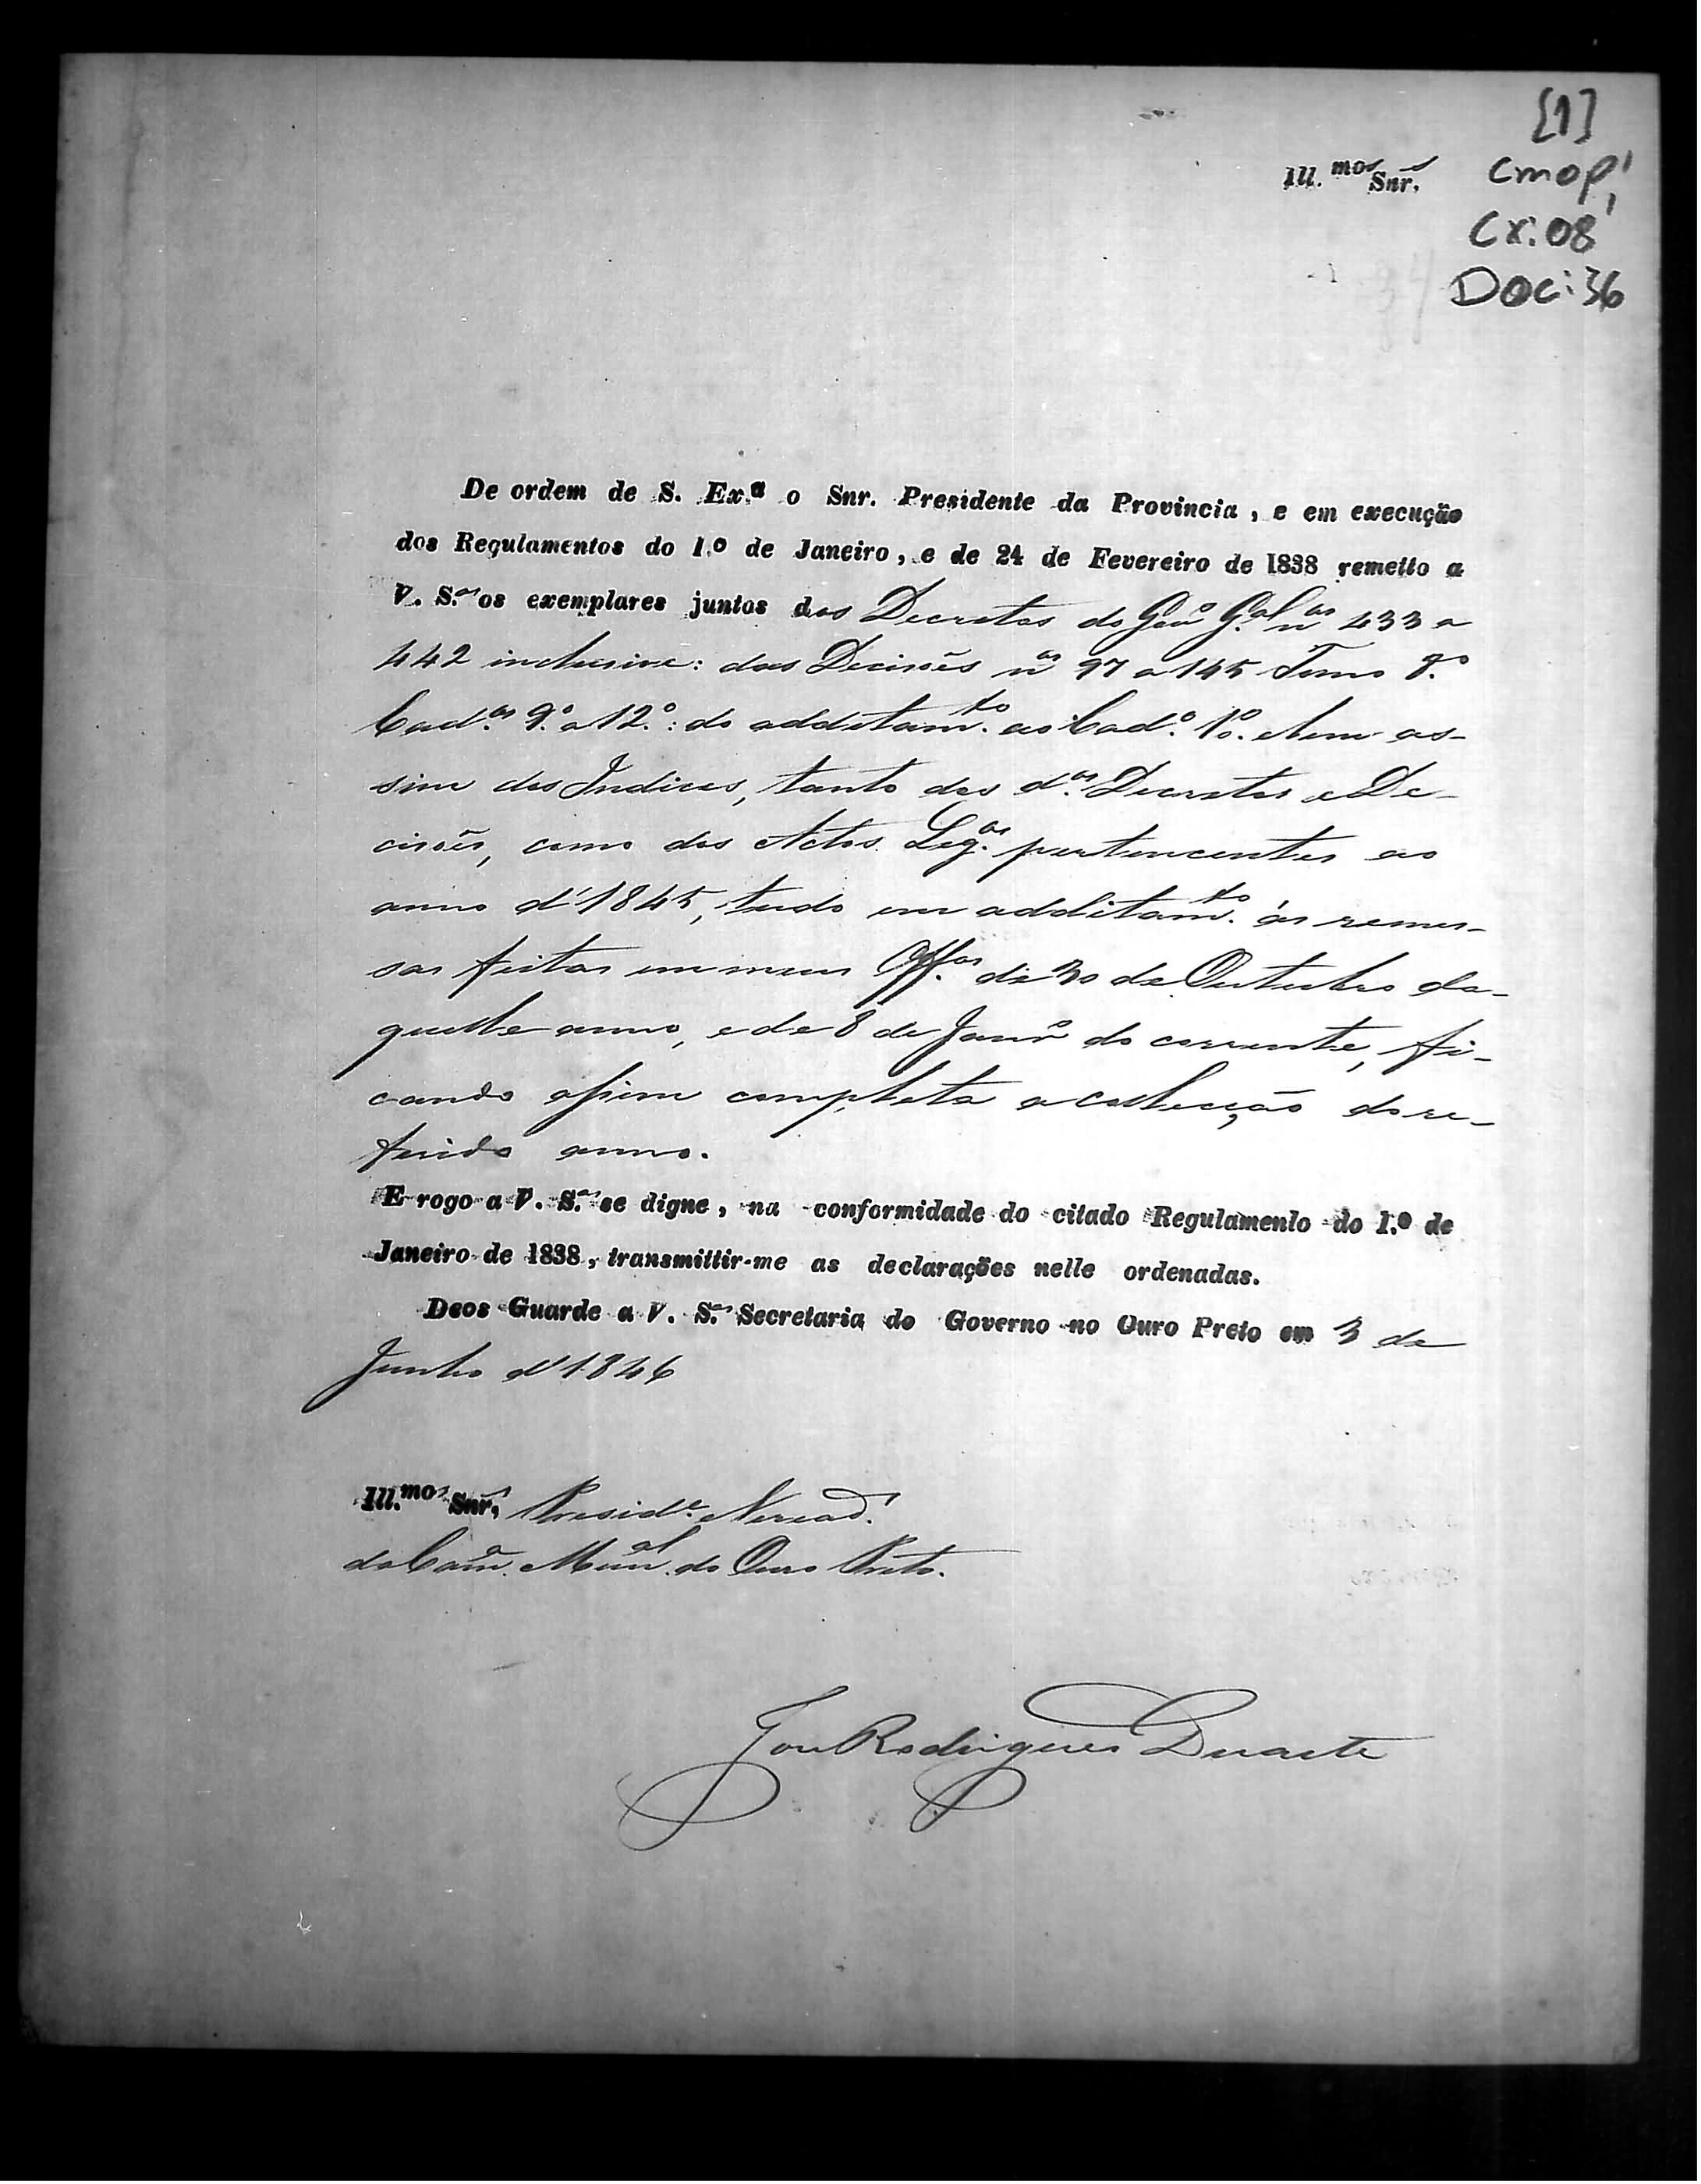 [1]
Ill.mos Snr.s
CMOP,
Cx: 08
Doc: 36
De ordem de S. Ex.a o Snr. Presidente da Provincia, e em execução
dos Regulamentos do 1.o de Janeiro, e de 24 de Fevereiro de 1838 remetto a
V. S.as os exemplares juntos dos Decretos do Gov.o G.al n.os 433 a
442 inclusive: das Decisões n.os 97 a 145 Tomo 8.o
Cad.os 9.o a 12.o: do additam.to ao Cad.o 10.o e bem as-
sim dos Indices, tanto dos d.os Decretos e De-
cisões, como dos Actos Leg.os pertencentes ao
anno d'1845, tudo em additam.to ás remes-
sas feitas em meus Off.os de 30 de Outubro da-
quelle anno, e de 8 de Janr.o do corrente, fi-
cando assim completa a collecção do re-
ferido anno.
E rogo a V. S.as se digne, na conformidade do citado Regulamento do 1.o de
Janeiro de 1838, transmittir-me as declarações nelle ordenadas.
Deos Guarde a V. S.as Secretaria do Governo no Ouro Preto em 3 de
Junho d'1846
Ill.mos Snr.s Presid.e e Veread.
da Cam.a Mun.al do Ouro Preto.
José Rodrigues Duarte